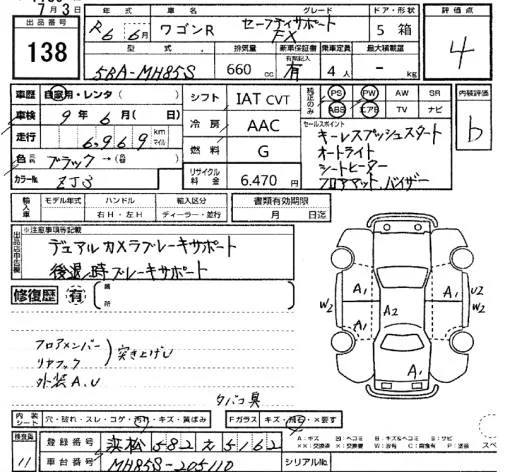 7月3日
年式 車名 グレード ドア・形状 評価点
出品番号 138
R6 6月 ワゴンR セーフティサポート FX 5 箱 4
型式 排気量 新車保証書 乗車定員 最大積載量
5BA-MH85S 660cc 有 4人 - kg
車歴 自家用・レンタ( ) シフト IAT CVT
純正のみ PS PW AW SR 内装評価
ABS エアB TV ナビ b
車検 9年6月( 日) 冷房 AAC
セールスポイント
キーレスプッシュスタート
オートライト
シートヒーター
フロアマット、バイザー
走行 6,969 km マイル
燃料 G
色 元色 ブラック→(替 )
カラーNo. ZJ3
リサイクル料金 6.470円
輸入車 モデル年式 ハンドル 輸入区分 書類有効期限
右H・左H ディーラー・並行 月 日迄
出品店申告欄 ※注意事項等記載
デュアルカメラブレーキサポート
後退時ブレーキサポート
修復歴 有 (箇所 )
フロアメンバー
リヤフック
突き上げU
外装A、U
タバコ具
A1 A1 U2 W2
W2 A2
A1 A1
内装シート 穴・破れ・スレ・コゲ・汚れ・キズ・黄ばみ Fガラス キズ・飛石・×要す
検査員 11
登録番号 浜松582え5162
車台番号 MH85S-205110 シリアルNo.